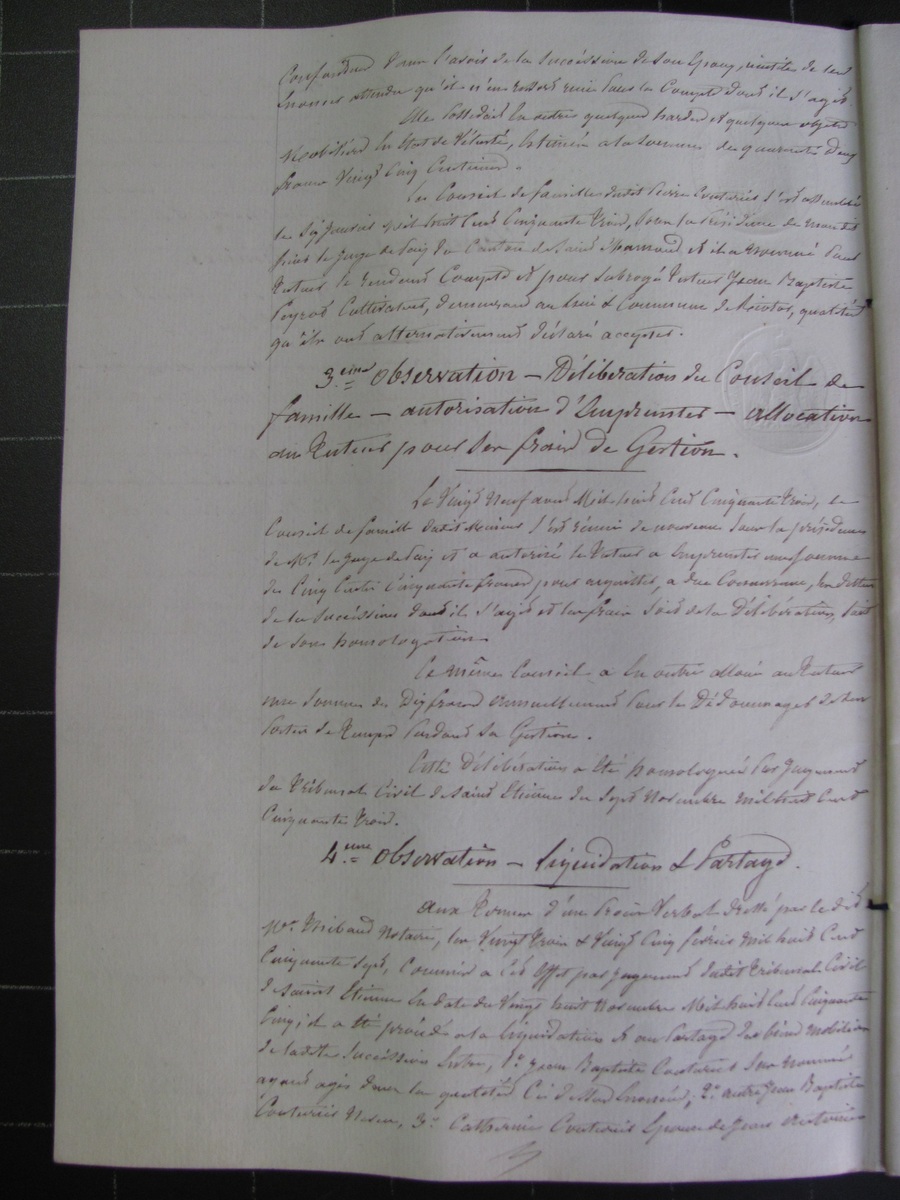 confondu dans l'avoir de la succession de son époux, inutile de les
énoncer attendu qu'il n'en ressort rien dans le compte dont il s'agit
Elle possédait en outre quelques hardes et quelques objets
mobiliers en état de vétusté, estimés à la somme de quarante deux
francs vingt cinq centimes.
Le Conseil de famille dudit Pierre Couturier s'est assemblé
le dix janvier mil huit cent cinquante trois, sous la présidence de mondit
sieur le juge de paix du Canton de Saint Chamond et il a nommé pour
tuteur le rendant compte et pour subrogé tuteur Jean Baptiste
Peyrot cultivateur, demeurant au lieu & commune de, qualités
qu'ils ont alternativement déclaré accepter.
3.eme Observation — Délibération du Conseil de
famille — autorisation d'Emprunter — allocation
au Tuteur pour ses frais de Gestion.
Le vingt neuf avril mil huit cent cinquante trois, le
Conseil de famille dudit mineur s'est réuni de nouveau sous la présidence
de Mr. le juge de paix et a autorisé le tuteur à emprunter une somme
de cinq cents cinquante francs pour acquitter, à due concurrence, les dettes
de la succession dont il s'agit et les frais soit de la délibération, soit
de son homologation.
Ce même Conseil a en outre alloué au tuteur
une somme de dix francs annuellement pour le dédommager de ses
pertes de temps pendant sa gestion.
Cette délibération a été homologuée par jugement
du Tribunal Civil de Saint Etienne du sept novembre mil huit cent
cinquante trois.
4.eme Observation — Liquidation & Partage.
Aux termes d'un Procès Verbal dressé par le dit
Me. notaire, les vingt trois & vingt cinq février mil huit cent
cinquante sept, commis à cet effet par jugement dudit Tribunal Civil
de Saint Etienne en date du vingt huit novembre mil huit cent cinquante
cinq, il a été procédé à la liquidation et au partage des biens mobiliers
de ladite succession entre, 1.° Jean Baptiste Couturier susnommé
ayant agi dans les qualités ci dessus énoncées; 2.° autre Jean Baptiste
Couturier neveu, 3.° Catherine Couturier épouse de Jean Antoine